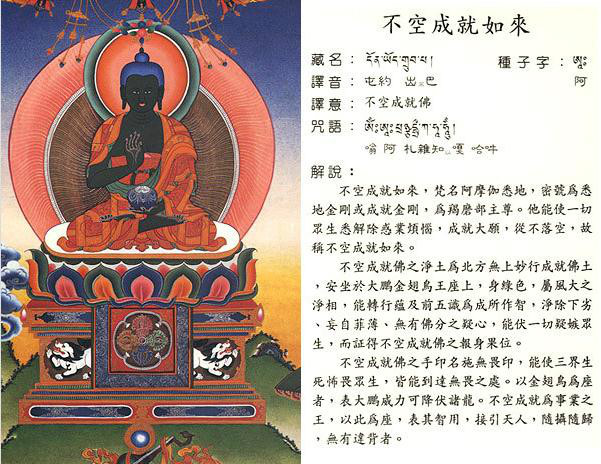 不空成就如來
藏名：དོན་ཡོད་གྲུབ་པ།　種子字：ཨཱཿ
譯音：屯約 出 巴　阿
譯意：不空成就佛
咒語：
嗡 阿 札雜知 嘎 哈吽
解說：
不空成就如來，梵名阿摩伽悉地，密號爲悉
地金剛或成就金剛，爲羯磨部主尊。他能使一切
眾生悉解除惑業煩惱，成就大願，從不落空，故
稱不空成就如來。
不空成就佛之淨土爲北方無上妙行成就佛土
，安坐於大鵬金翅鳥王座上，身綠色，屬風大之
淨相，能轉行蘊及前五識爲成所作智，淨除下劣
、妄自菲薄、無有佛分之疑心，能伏一切疑嫉眾
生，而証得不空成就佛之報身果位。
不空成就佛之手印名施無畏印，能使三界生
死怖畏眾生，皆能到達無畏之處。以金翅鳥爲座
者，表大鵬威力可降伏諸龍。不空成就爲事業之
王，以此爲座，表其智用，接引天人，隨攝隨歸
，無有違背者。